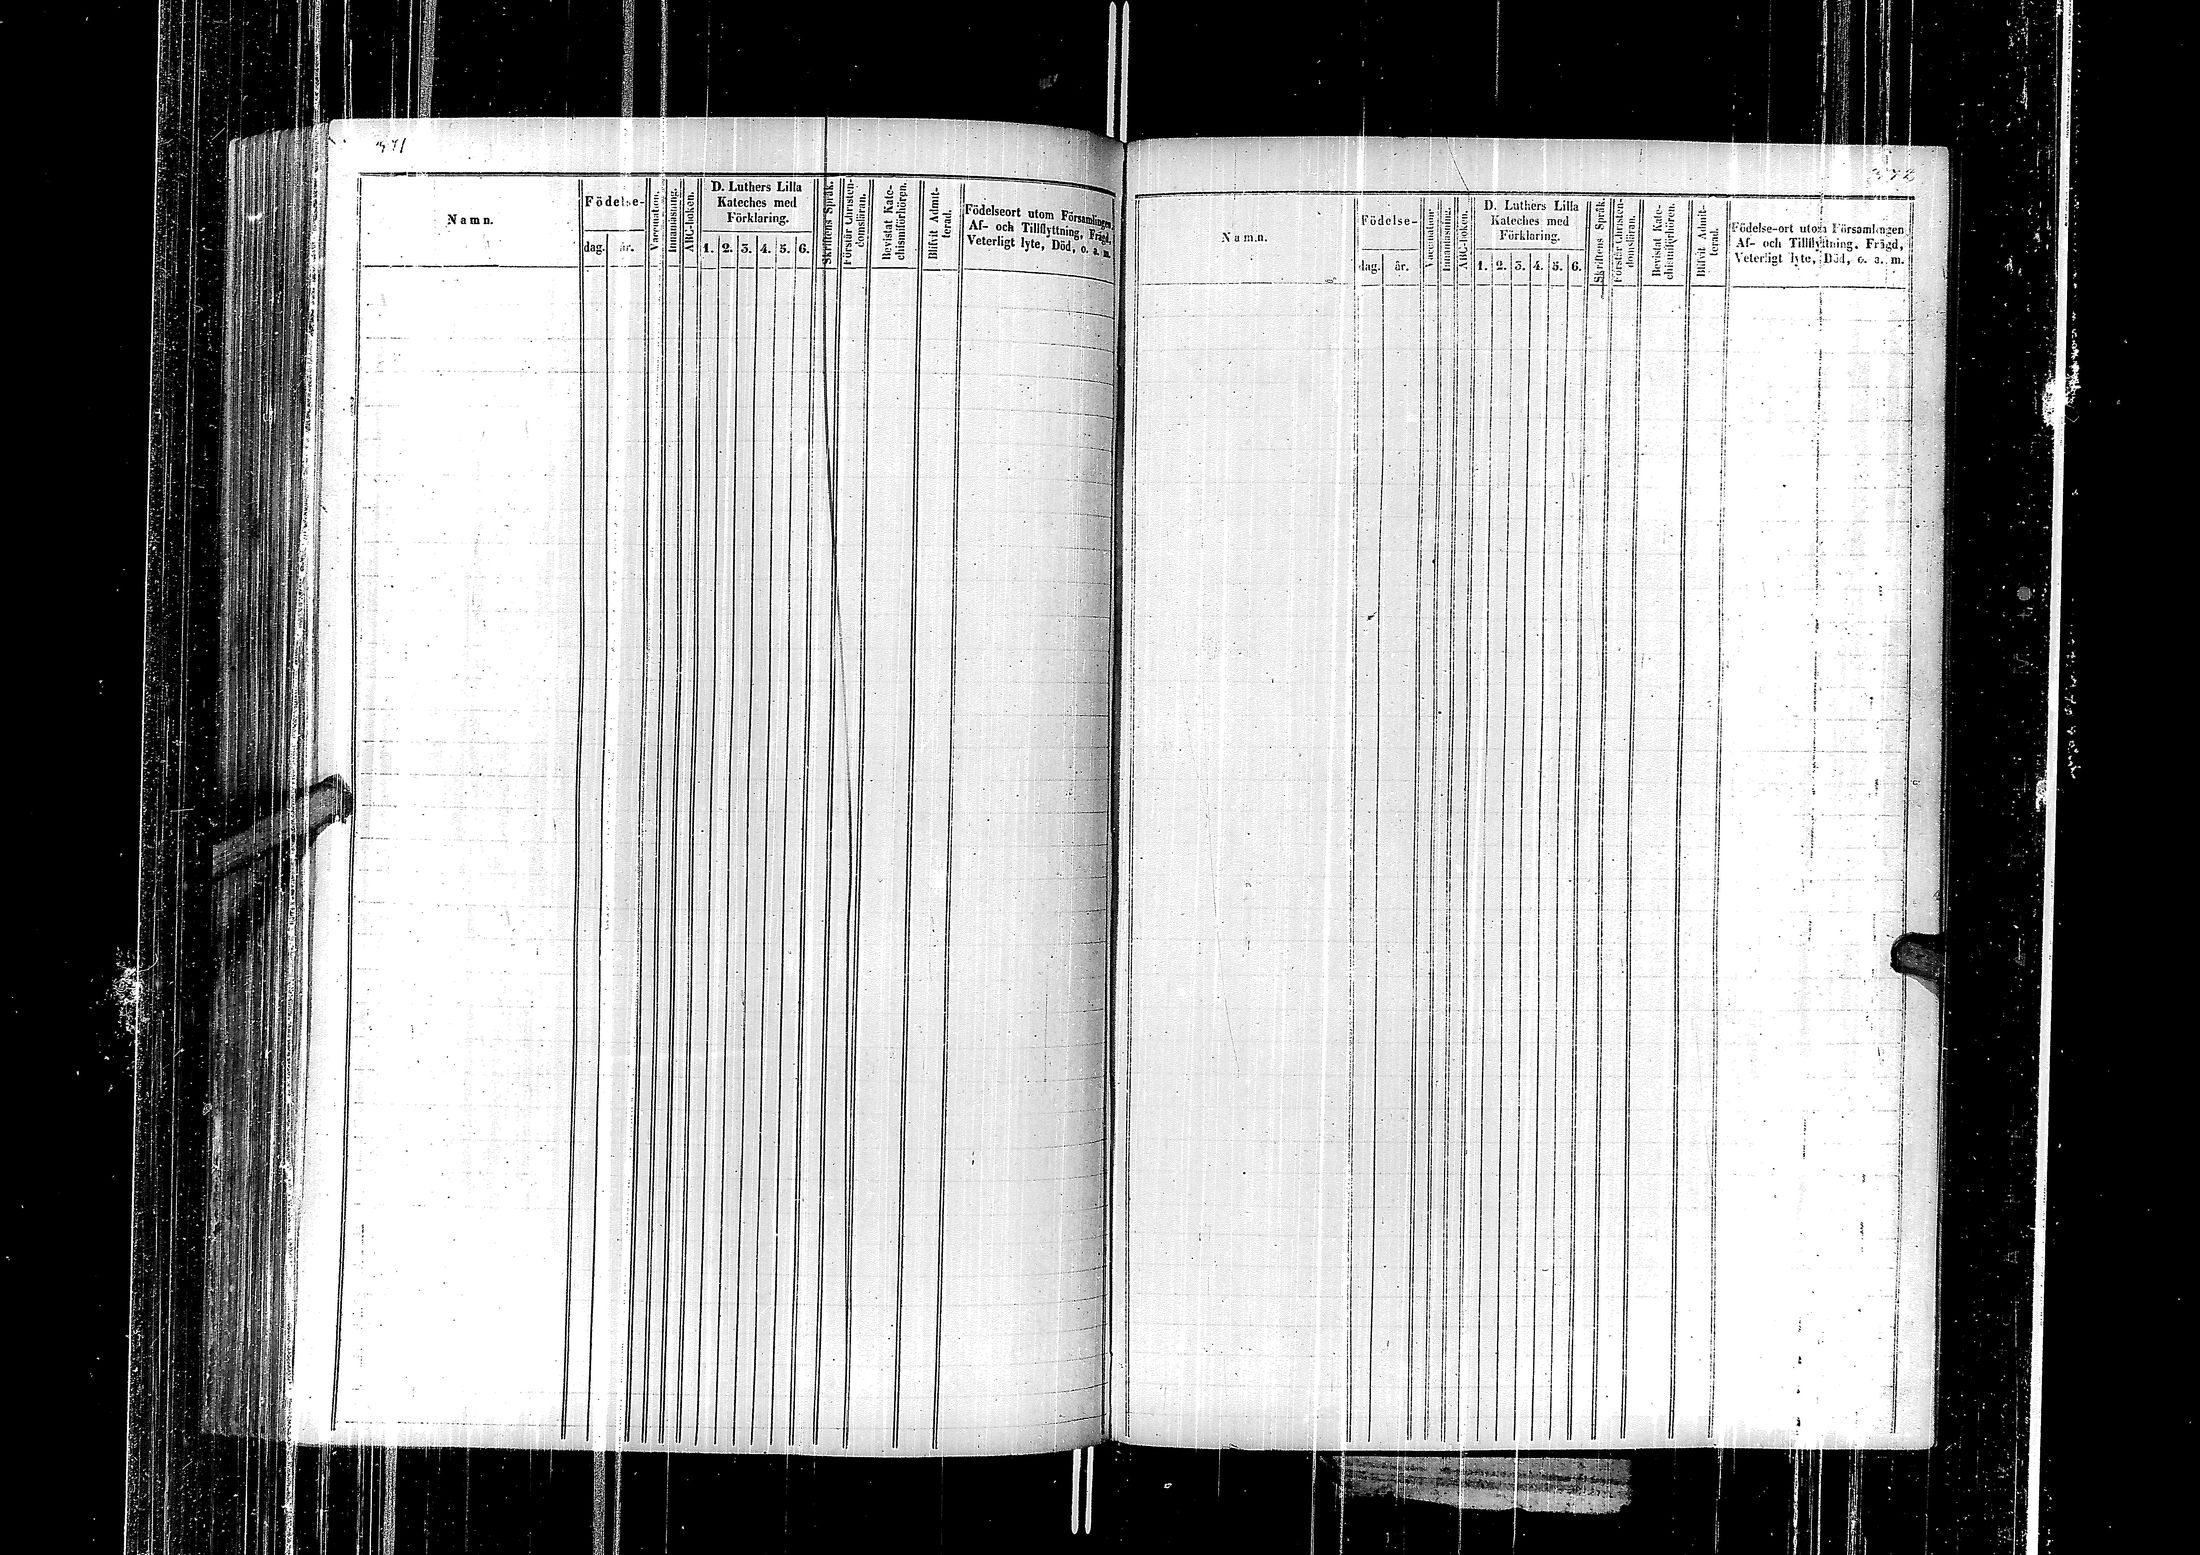 371
Namn.
Födelse-
dag. år.
Vaccination.
Innanläsning.
ABC-boken.
D. Luthers Lilla
Kateches med
Förklaring.
1. 2. 3. 4. 5. 6.
Skriftens Språk.
Förstår Christen-
domsläran.
Bevistat Kate-
chismiförhören.
Blifvit Admit-
terad.
Födelseort utom Församlingen,
Af- och Tillflyttning, Frägd,
Veterligt lyte, Död, o. a. m.
372
Namn.
Födelse-
dag. år.
Vaccination
Innanläsning.
ABC-boken.
D. Luthers Lilla
Kateches med
Förklaring.
1. 2. 3. 4. 5. 6.
Skriftens Språk.
Förstår Christen-
domsläran.
Bevistat Kate-
chismiförhören.
Blifvit Admit-
terad.
Födelse-ort utom Församlingen
Af- och Tillflyttning, Frägd,
Veterligt lyte, Död, o. a. m.